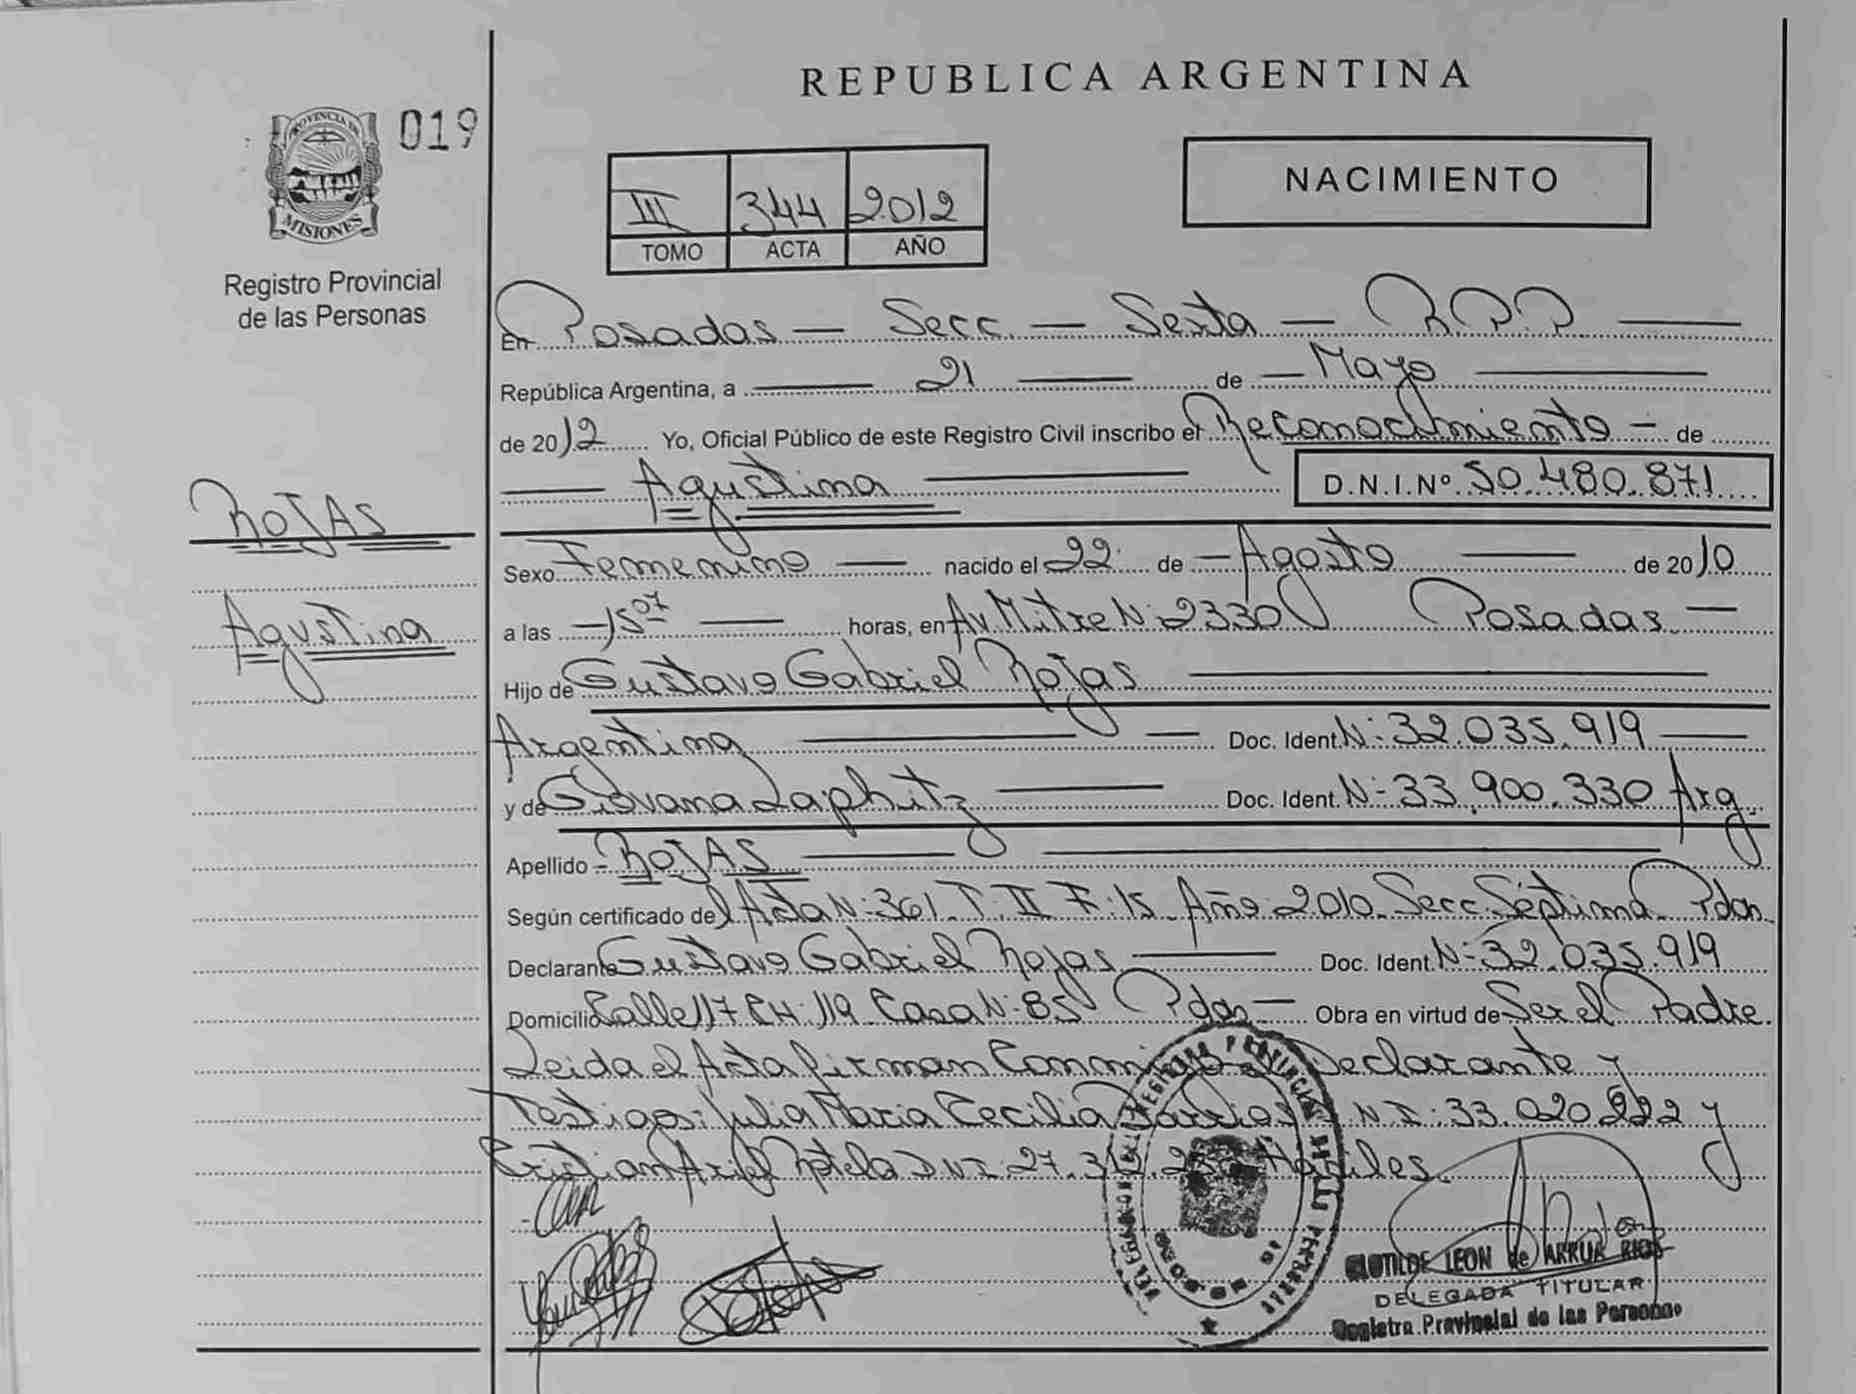 REPUBLICA ARGENTINA
019
PROVINCIA DE
MISIONES
Registro Provincial
de las Personas
NACIMIENTO
III 344 2012
TOMO ACTA AÑO
En Posadas — Secc. — Sexta — R.P.P —
República Argentina, a — 21 — de — Mayo —
de 2012 Yo, Oficial Público de este Registro Civil inscribo el Reconocimiento — de
— Agustina — D.N.I.Nº 50.480.871
ROJAS
Agustina
Sexo Femenino — nacido el 22 de — Agosto — de 2010
a las — 15 07 — horas, en Av. Mitre N: 2330 Posadas —
Hijo de Gustavo Gabriel Rojas —
Argentina — Doc. Ident. N: 32.035.919 —
y de Giovana Laphitz — Doc. Ident. N- 33.900.330 Arg.
Apellido - ROJAS —
Según certificado del Acta N: 361 T: II F: 15 Año 2010 Secc. Séptima Pdas.
Declarante Gustavo Gabriel Rojas — Doc. Ident. N- 32.035.919
Domicilio Calle 117 CH: 119 Casa N: 85 Pdas — Obra en virtud de Ser el Padre.
Leida el Acta firman Conmigo el Declarante y
Testigos: Julia Maria Cecilia Barrios N.I: 33.020.222 y
Cristian Ariel D.N.I: 27. Habiles.
DELEGACION REGISTRO PROVINCIAL DE LAS PERSONAS
CLOTILDE LEON de ARRUA RIOS
DELEGADA TITULAR
Registro Provincial de las Personas